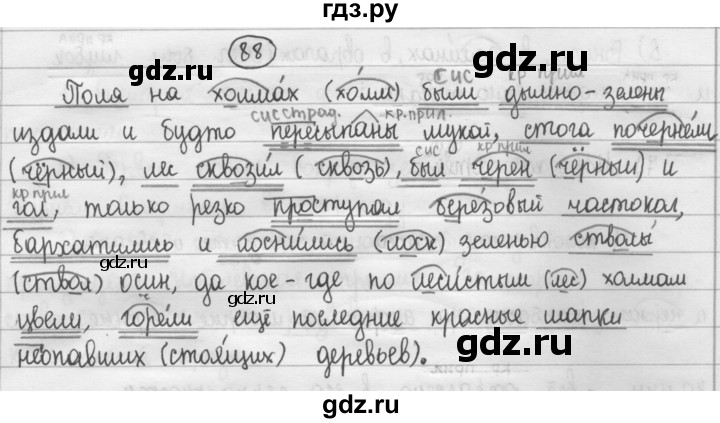 гдз.ру
88
gdz.ru gdz.ru
сис кр прил
Поля на холмах (холм) были дымно-зелены
сис страд. кр. прил.
издали и будто пересыпаны мукой, стога почернели
сис кр прил
(чёрный), лес сквозил (сквозь), был черен (чёрный) и
кр прил
гол, только резко проступал берёзовый частокол,
gdz.ru gdz.ru
бархатились и лоснились (лоск) зеленью стволы
(ствол) осин, да кое-где по лесистым (лес) холмам
gdz.ru
цвели, горели ещё последние красные шапки
неопавших (стоящих) деревьев).
gdz.ru gdz.ru
gdz.ru